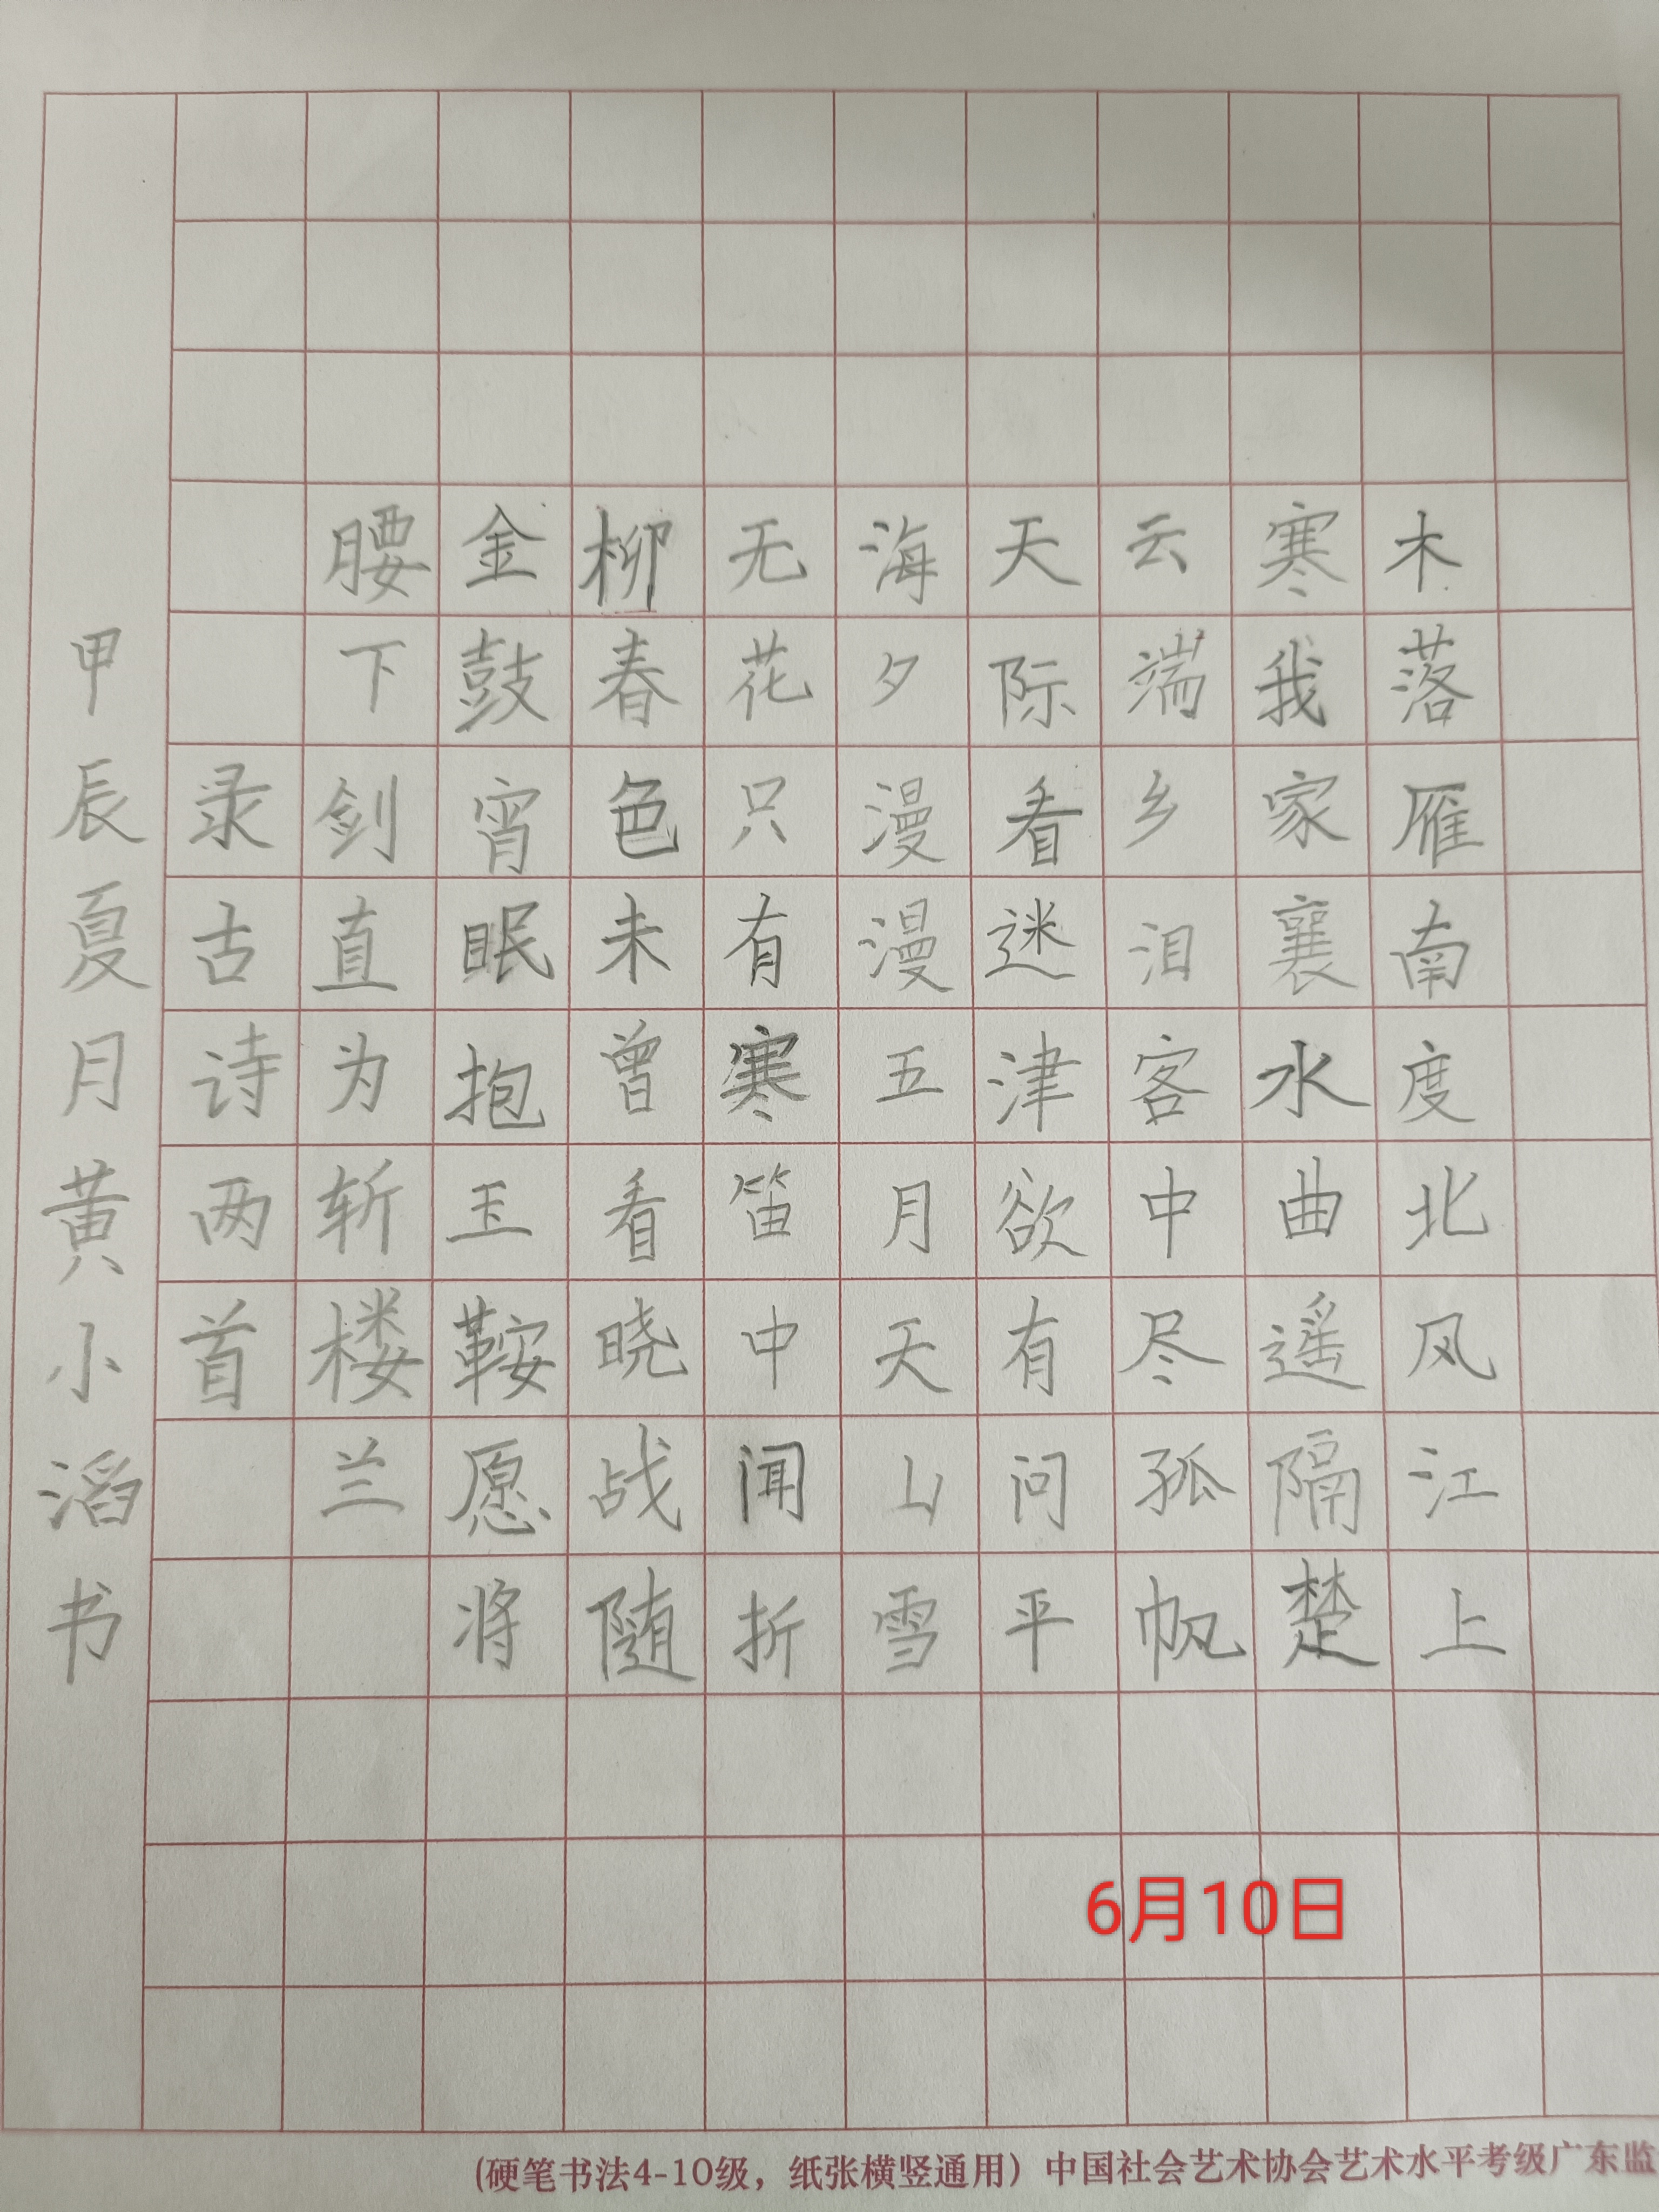 木落雁南度北风江上
寒我家襄水曲遥隔楚
云端乡泪客中尽孤帆
天际看迷津欲有问平
海夕漫漫五月天山雪
无花只有寒笛中闻折
柳春色未曾看晓战随
金鼓宵眠抱玉鞍愿将
腰下剑直为斩楼兰
录古诗两首
甲辰夏月黄小滔书
6月10日
(硬笔书法4-10级，纸张横竖通用）中国社会艺术协会艺术水平考级广东监